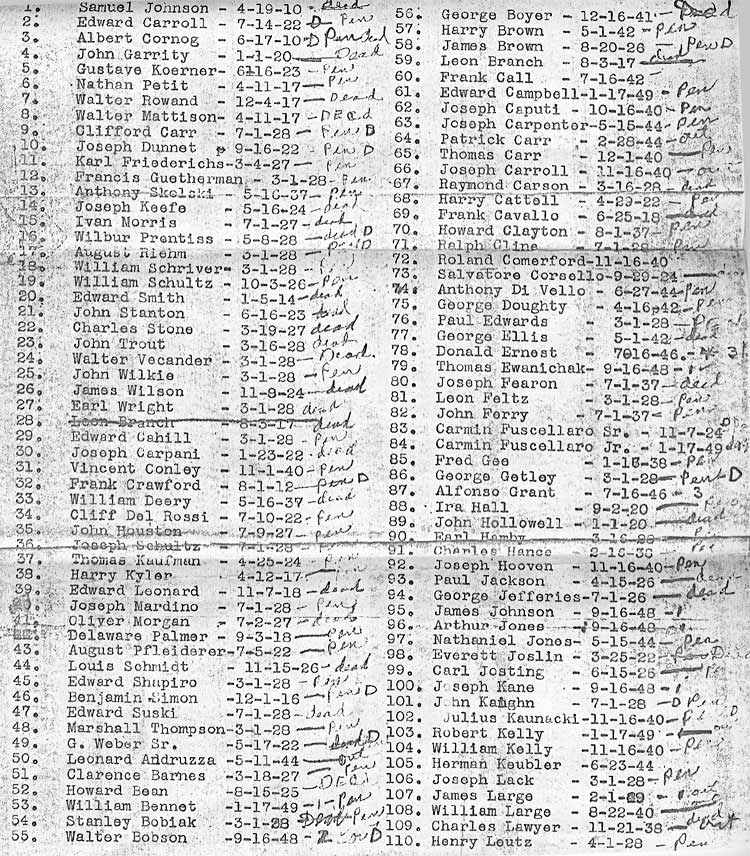 1. Samuel Johnson - 4-19-10 - dead
2. Edward Carroll - 7-14-22 D - Pen
3. Albert Cornog - 6-17-10 D Pen
4. John Garrity - 1-1-20 - Dead
5. Gustave Koerner - 6-16-23 - Pen
6. Nathan Petit - 4-11-17 - Pen
7. Walter Rowand - 12-4-17 - Dead
8. Walter Mattison - 4-11-17 - DEAd
9. Clifford Carr - 7-1-28 - Pen D
10. Joseph Dunnet - 9-16-22 - Pen D
11. Karl Friederichs - 3-4-27 - Pen
12. Francis Guetherman - 3-1-28 - Pen
13. Anthony Skolski - 5-16-37 - Pen
14. Joseph Keefe - 5-16-24 - dead
15. Ivan Norris - 7-1-27 - dead
16. Wilbur Prentiss - 5-8-28 - dead D
17. August Riehm - 3-1-28 - Pen D
18. William Schriver - 3-1-28 -
19. William Schultz - 10-3-26 - Pen
20. Edward Smith - 1-5-14 - dead
21. John Stanton - 6-16-23 - dead
22. Charles Stone - 3-19-27 dead
23. John Trout - 3-16-28 dead
24. Walter Vecander - 3-1-28 - Dead.
25. John Wilkie - 3-1-28 - Pen
26. James Wilson - 11-8-24 - dead
27. Earl Wright - 3-1-28 dead
28. Leon Branch - 8-3-17 - dead
29. Edward Cahill - 3-1-28 - Pen
30. Joseph Carpani - 1-23-22 - dead
31. Vincent Conley - 11-1-40 - Pen
32. Frank Crawford - 8-1-12 - Pen D
33. William Deery - 5-16-37 - dead
34. Cliff Del Rossi - 7-10-22 - Pen
35. John Houston - 7-9-27 - Pen
36. Joseph Schultz - 7-1-28 - Pen
37. Thomas Kaufman - 4-25-24 - Pen
38. Harry Kyler - 4-12-17 - Pen
39. Edward Leonard - 11-7-18 - dead
40. Joseph Mardino - 7-1-28 - Pen
41. Oliver Morgan - 7-2-27 - dead
42. Delaware Palmer - 9-3-18 - Pen
43. August Pfleiderer - 7-5-22 - Pen
44. Louis Schmidt - 11-15-26 - dead
45. Edward Shapiro - 3-1-28 - Pen
46. Benjamin Simon - 12-1-16 - Pen D
47. Edward Suski - 7-1-28 - dead
48. Marshall Thompson - 3-1-28 - Pen
49. G. Weber Sr. - 5-17-22 - dead D
50. Leonard Addruzza - 5-11-44 - out
51. Clarence Barnes - 3-18-27 - Pen
52. Howard Bean - 8-15-25 - DEAd
53. William Bennet - 1-17-49 - 1 - Pen
54. Stanley Bobiak - 3-1-28 Pen
55. Walter Bobson - 9-16-48 -
56. George Boyer - 12-16-41 - Dead
57. Harry Brown - 5-1-42 - Pen
58. James Brown - 8-20-26 - Pen D
59. Leon Branch - 8-3-17 - dead
60. Frank Call - 7-16-42 -
61. Edward Campbell - 1-17-49 - Pen
62. Joseph Caputi - 10-16-40 - Pen
63. Joseph Carpenter - 5-15-44 - Pen
64. Patrick Carr - 2-28-44 - out
65. Thomas Carr - 12-1-40 - Pen
66. Joseph Carroll - 11-16-40 -
67. Raymond Carson - 3-16-28 - dead
68. Harry Cattell - 4-29-22 - Pen
69. Frank Cavallo - 6-25-18 - dead
70. Howard Clayton - 8-1-37 - Pen
71. Ralph Cline - 7-1-28 - Pen
72. Roland Comerford - 11-16-40
73. Salvatore Corsello - 9-29-24 -
74. Anthony Di Vello - 6-27-44 - Pen
75. George Doughty - 4-16-42 - Pen
76. Paul Edwards - 3-1-28 - Pen
77. George Ellis - 5-1-42 - dead
78. Donald Ernest - 7-16-46 - 3
79. Thomas Ewanichak - 9-16-48 - 1
80. Joseph Fearon - 7-1-37 - dead
81. Leon Feltz - 3-1-28 - Pen
82. John Ferry - 7-1-37 - Pen
83. Carmin Fuscellaro Sr. - 11-7-24
84. Carmin Fuscellaro Jr. - 1-17-49
85. Fred Gee - 1-16-38 - Pen
86. George Getley - 3-1-28 - Pen D
87. Alfonso Grant - 7-16-46 - 3
88. Ira Hall - 9-2-20 -
89. John Hollowell - 1-1-20 - dead
90. Earl Hamby 3-16-28 - Pen
91. Charles Hance 2-16-38 - Pen
92. Joseph Hooven - 11-16-40 - Pen
93. Paul Jackson - 4-15-26 - dead
94. George Jefferies - 7-1-26 - dead
95. James Johnson - 9-16-48 - 1
96. Arthur Jones - 9-16-48 - 1
97. Nathaniel Jones - 5-15-44 - Pen
98. Everett Joslin - 3-25-22 -
99. Carl Josting - 6-15-26 - Pen
100. Joseph Kane - 9-16-48 - 1
101. John Kaughn - 7-1-28 - D Pen
102. Julius Kaunacki - 11-16-40 - Pen D
103. Robert Kelly - 1-17-49 -
104. William Kelly - 11-16-40 - Pen
105. Herman Keubler - 6-23-44
106. Joseph Lack - 3-1-28 - Pen
107. James Large - 2-1-29 - out
108. William Large - 8-22-40 - dead
109. Charles Lawyer - 11-21-38 - out
110. Henry Leutz - 4-1-28 - Pen